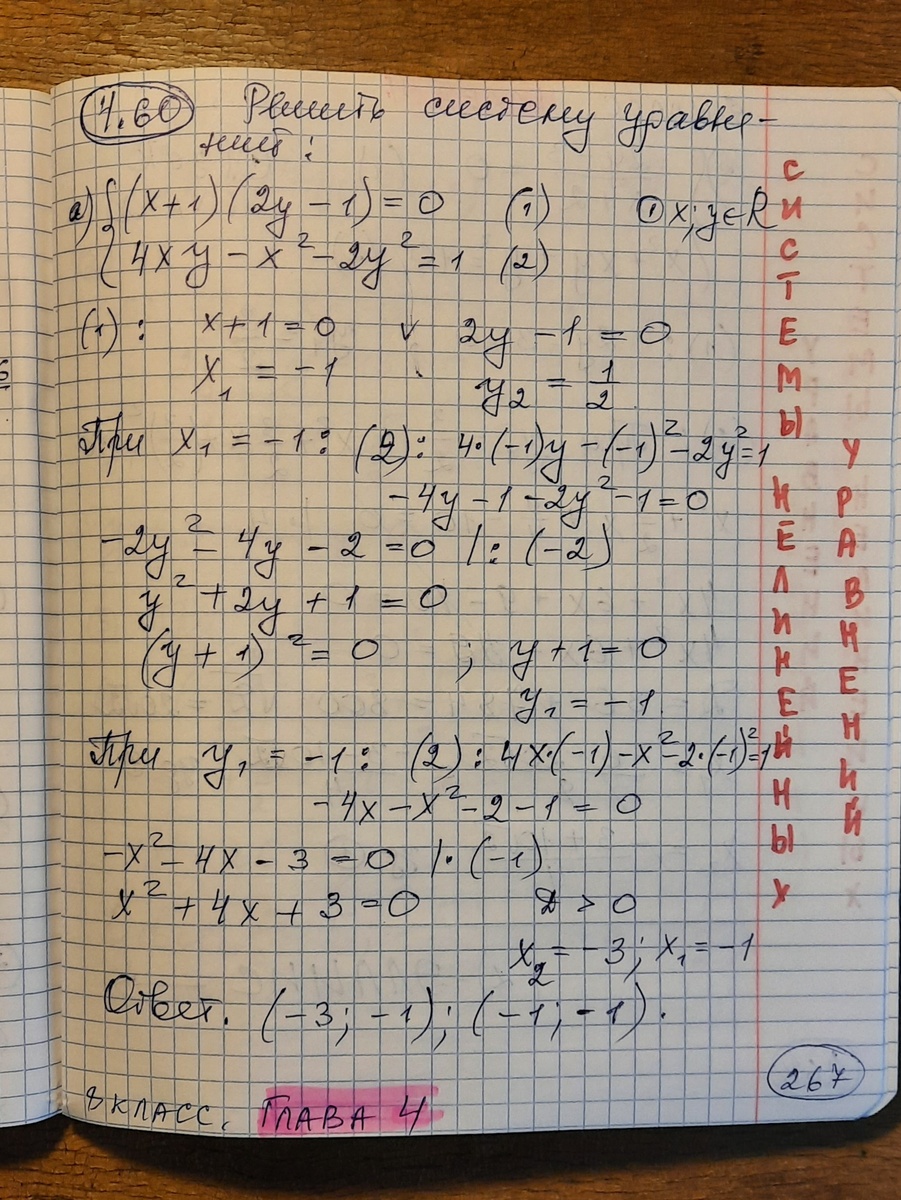 4.60 Решить систему уравне-
ний:
а) { (x+1)(2y-1)=0 (1) ① x; y ∈ R
4xy-x²-2y²=1 (2)
(1): x+1=0 ∨ 2y-1=0
x₁ = -1 y₂ = 1/2
При x₁ = -1: (2): 4·(-1)y-(-1)²-2y²=1
-4y-1-2y²-1=0
-2y²-4y-2=0 |:(-2)
y²+2y+1=0
(y+1)²=0 ; y+1=0
y₁=-1.
При y₁ = -1: (2): 4x·(-1)-x²-2·(-1)²=1
-4x-x²-2-1=0
-x²-4x-3=0 |·(-1)
x²+4x+3=0 D > 0
x₂=-3; x₁=-1
Ответ. (-3; -1); (-1; -1).
8 КЛАСС. ГЛАВА 4
267
СИСТЕМЫ НЕЛИНЕЙНЫХ
УРАВНЕНИЙ